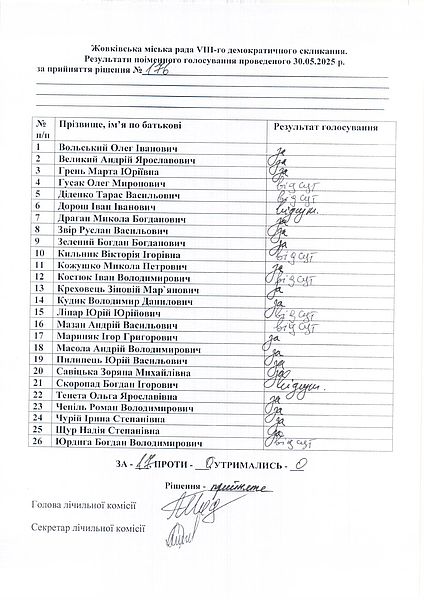 Жовківська міська рада VIII-го демократичного скликання.
Результати поіменного голосування проведеного 30.05.2025 р.
за прийняття рішення № 176
№ п/п Прізвище, ім’я по батькові Результат голосування
1 Вольський Олег Іванович за
2 Великий Андрій Ярославович за
3 Грень Марта Юріївна за
4 Гусак Олег Миронович відсут
5 Діденко Тарас Васильович відсут
6 Дорош Іван Іванович відсутн.
7 Драган Микола Богданович за
8 Звір Руслан Васильович за
9 Зелений Богдан Богданович за
10 Кильник Вікторія Ігорівна відсут
11 Кожушко Микола Петрович за
12 Костюк Іван Володимирович відсут
13 Креховець Зіновій Мар`янович за
14 Кудик Володимир Данилович за
15 Ліпар Юрій Юрійович відсут
16 Мазан Андрій Васильович відсут
17 Мариняк Ігор Григорович за
18 Масола Андрій Володимирович за
19 Пилипець Юрій Васильович за
20 Савіцька Зоряна Михайлівна за
21 Скоропад Богдан Ігорович відсутн.
22 Тенета Ольга Ярославівна за
23 Чепіль Роман Володимирович за
24 Чурій Ірина Степанівна за
25 Щур Надія Степанівна за
26 Юрдига Богдан Володимирович відсут
ЗА - 17 ПРОТИ - 0 УТРИМАЛИСЬ - 0
Рішення - прийняте
Голова лічильної комісії
Секретар лічильної комісії